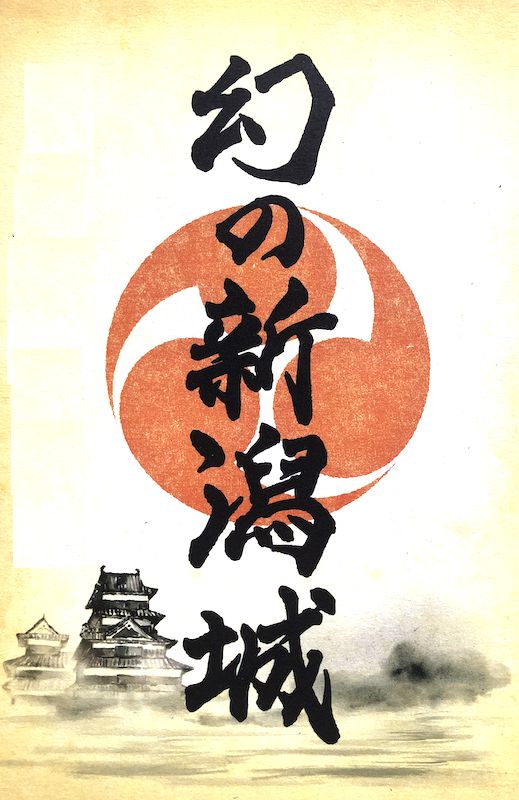 幻の新潟城